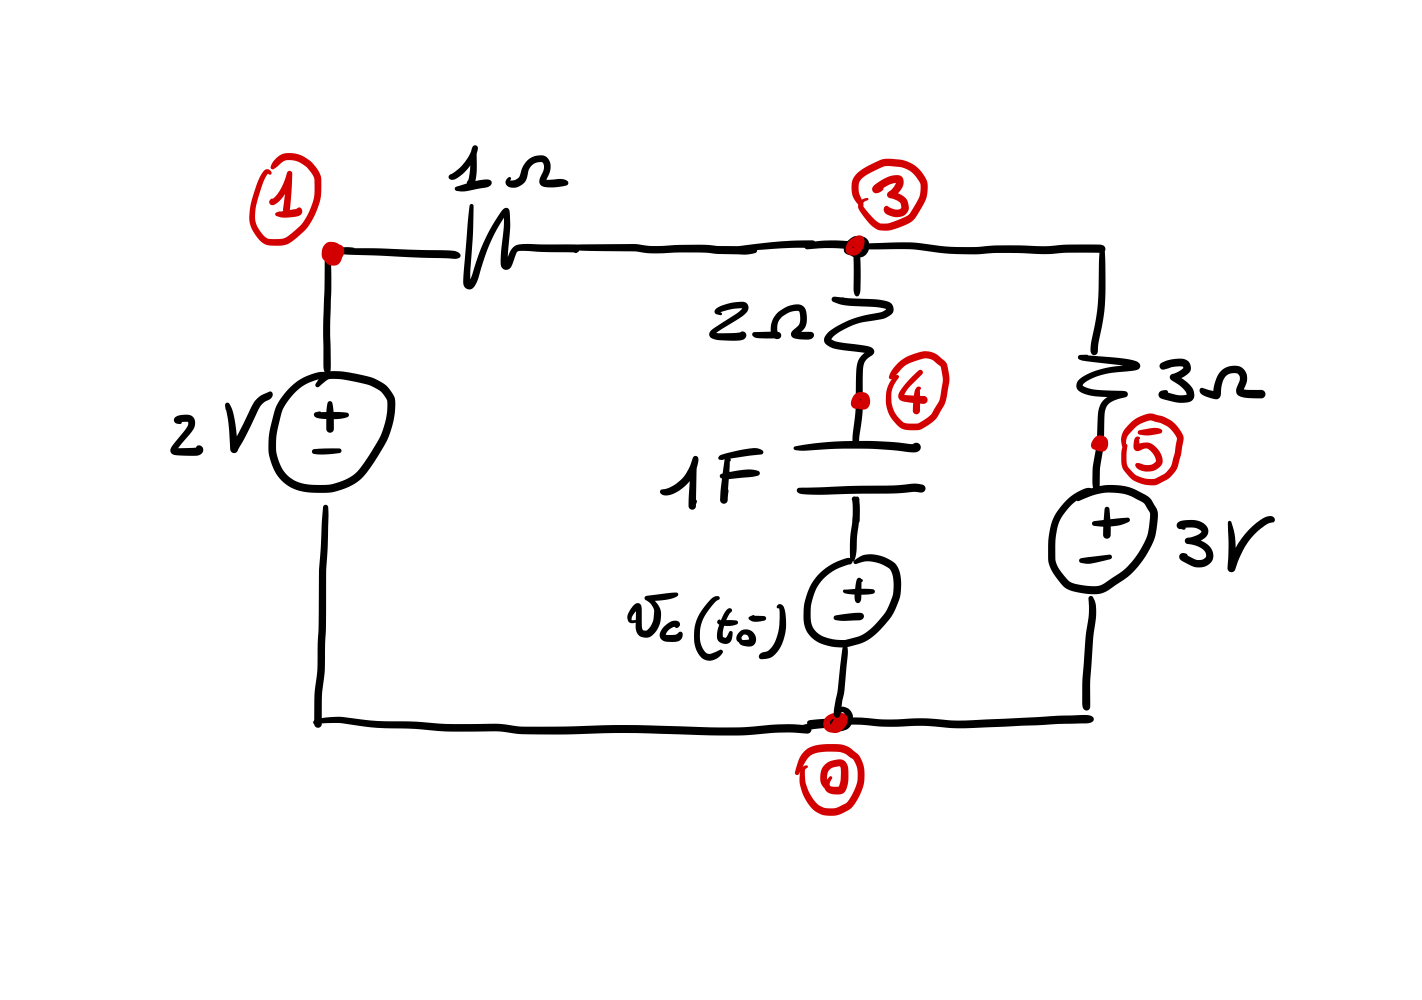 1
1 Ω
3
2Ω
4
3Ω
5
2 V
+
−
1F
+
−
3V
vc(t0-)
+
−
0